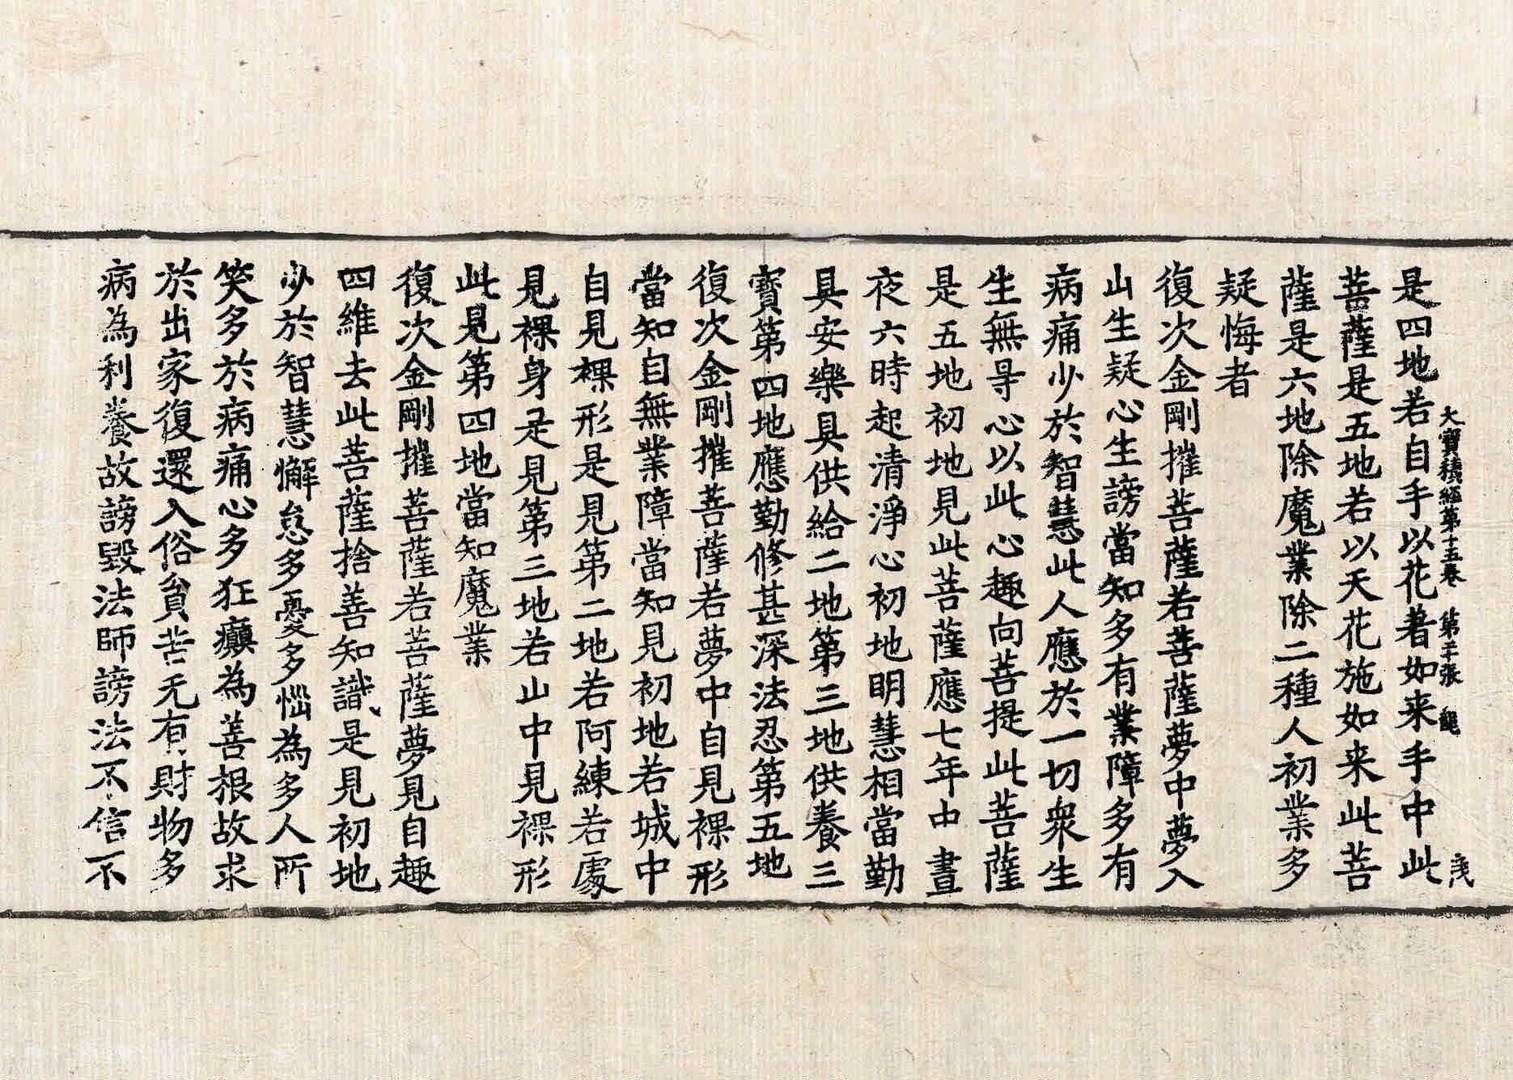 大寶積經第十五卷
是四地若自手以花著如来手中此
菩薩是五地若以天花施如来此菩
薩是六地除魔業除二種人初業多
疑悔者
復次金剛摧菩薩若菩薩夢中夢入
山生疑心生謗當知多有業障多有
病痛少於智慧此人應於一切衆生
生無㝵心以此心趣向菩提此菩薩
是五地初地見此菩薩應七年中晝
夜六時起清淨心初地明慧相當勤
具安樂具供給二地第三地供養三
寶第四地應勤修甚深法忍第五地
復次金剛摧菩薩若夢中自見裸形
當知自無業障當知見初地若城中
自見裸形是見第二地若阿練若處
見裸身是見第三地若山中見裸形
此見第四地當知魔業
復次金剛摧菩薩若菩薩夢見自趣
四維去此菩薩捨善知識是見初地
少於智慧懈怠多憂多惱為多人所
笑多於病痛心多狂癲為善根故求
於出家復還入俗貧苦无有財物多
病為利養故謗毀法師謗法不信不